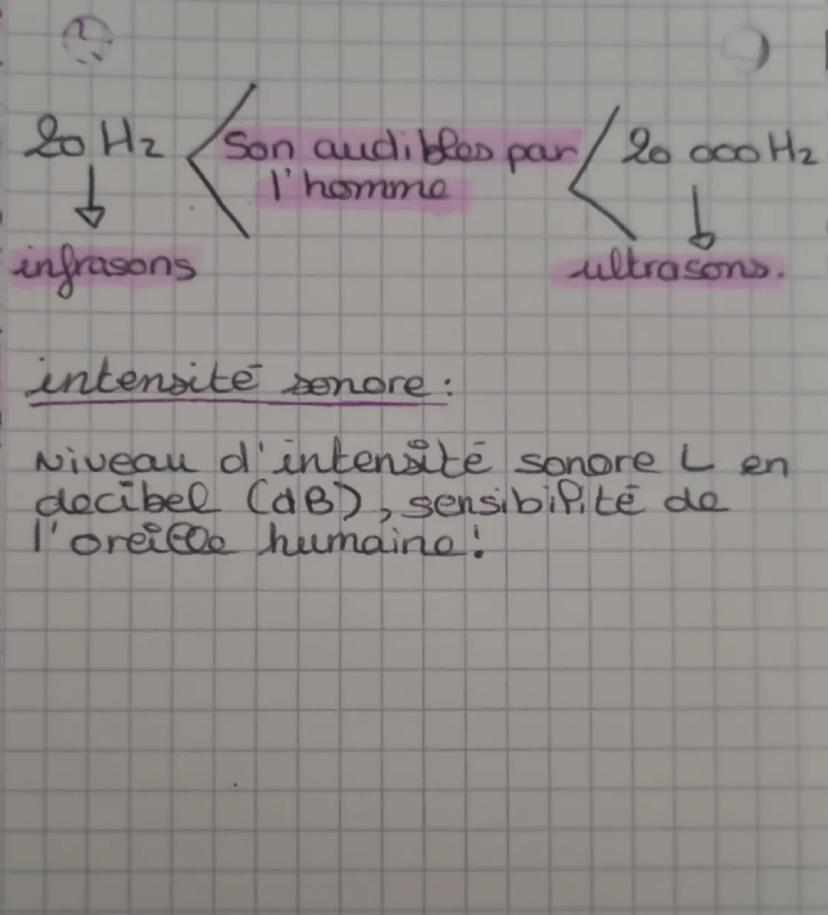 20 Hz < son audibles par < 20 000 Hz
l'homme
↓ ↓
infrasons ultrasons.
intensité sonore :
Niveau d'intensité sonore L en
decibel (dB), sensibilité de
l'oreille humaine!